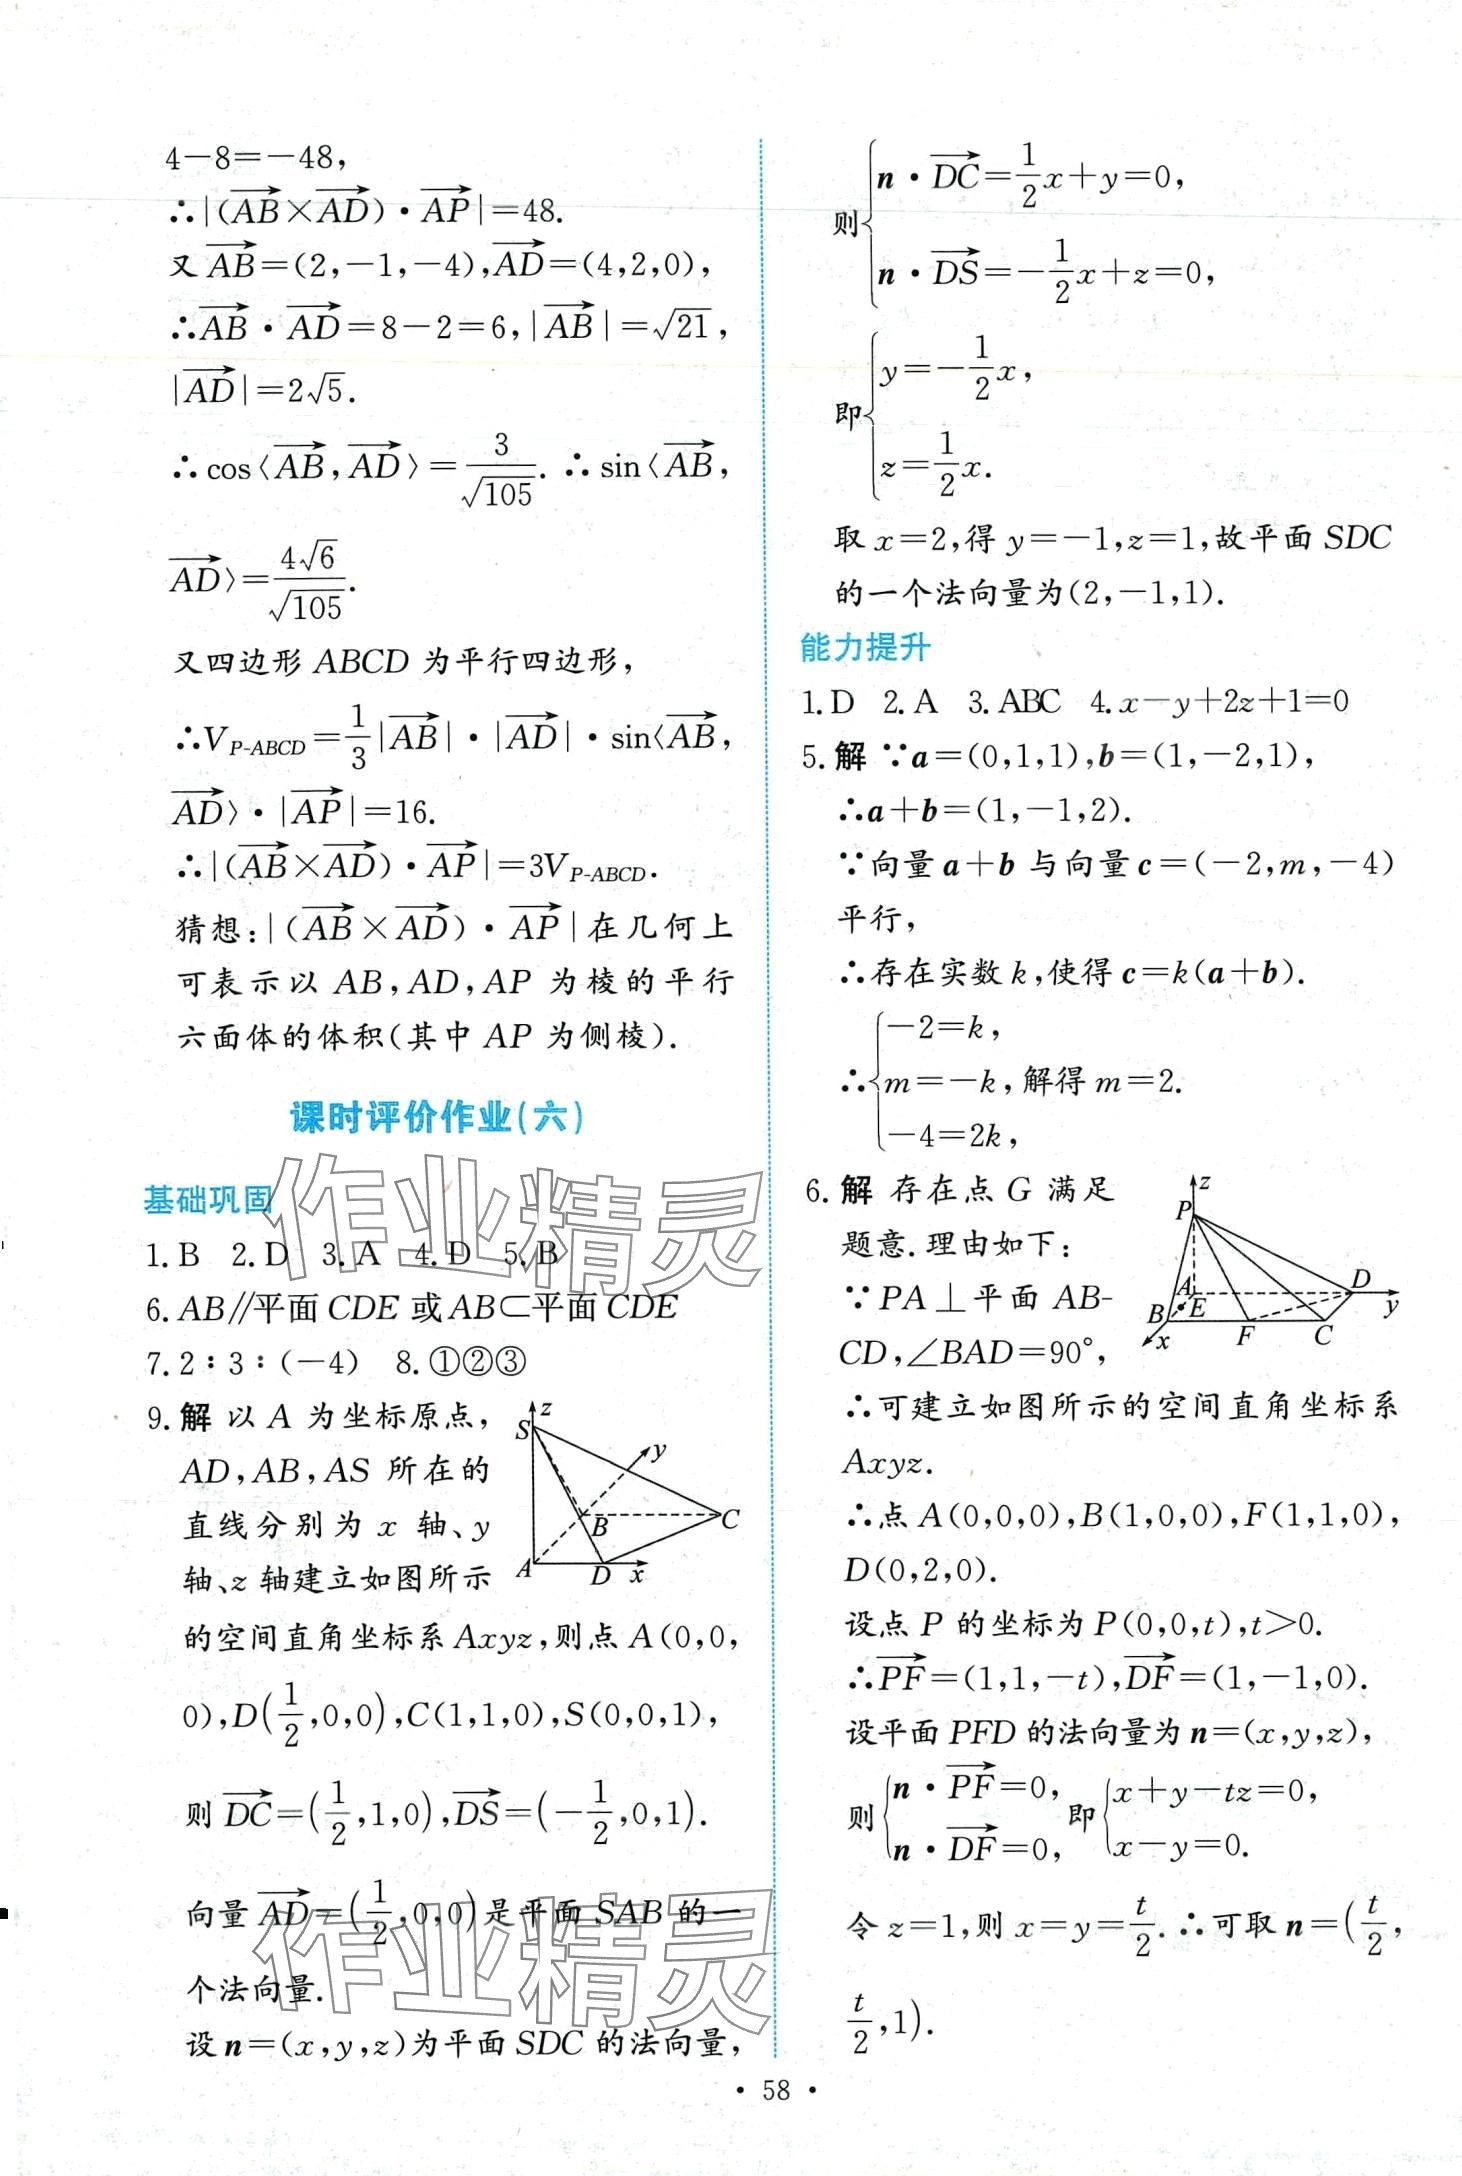 4－8＝－48，
∴|(AB×AD)·AP|＝48.
又AB＝(2，－1，－4)，AD＝(4，2，0)，
∴AB·AD＝8－2＝6，|AB|＝√21，
|AD|＝2√5.
∴cos〈AB，AD〉＝3/√105. ∴sin〈AB，
AD〉＝4√6/√105.
又四边形ABCD为平行四边形，
∴V_{P-ABCD}＝1/3|AB|·|AD|·sin〈AB，
AD〉·|AP|＝16.
∴|(AB×AD)·AP|＝3V_{P-ABCD}.
猜想：|(AB×AD)·AP|在几何上
可表示以AB，AD，AP为棱的平行
六面体的体积(其中AP为侧棱).
课时评价作业(六)
基础巩固
1.B 2.D 3.A 4.D 5.B
6.AB∥平面CDE或AB⊂平面CDE
7.2∶3∶(－4) 8.①②③
9.解 以A为坐标原点，
AD，AB，AS所在的
直线分别为x轴、y
轴、z轴建立如图所示
的空间直角坐标系Axyz，则点A(0，0，
0)，D(1/2，0，0)，C(1，1，0)，S(0，0，1)，
则DC＝(1/2，1，0)，DS＝(－1/2，0，1).
向量AD＝(1/2，0，0)是平面SAB的一
个法向量.
设n＝(x，y，z)为平面SDC的法向量，
z
S
y
B
C
A
D
x
则{n·DC＝1/2x＋y＝0，
n·DS＝－1/2x＋z＝0，
即{y＝－1/2x，
z＝1/2x.
取x＝2，得y＝－1，z＝1，故平面SDC
的一个法向量为(2，－1，1).
能力提升
1.D 2.A 3.ABC 4.x－y＋2z＋1＝0
5.解 ∵a＝(0，1，1)，b＝(1，－2，1)，
∴a＋b＝(1，－1，2).
∵向量a＋b与向量c＝(－2，m，－4)
平行，
∴存在实数k，使得c＝k(a＋b).
∴{－2＝k，
m＝－k，解得m＝2.
－4＝2k，
6.解 存在点G满足
题意.理由如下：
∵PA⊥平面AB-
CD，∠BAD＝90°，
z
P
A
D
B
E
y
x
F
C
∴可建立如图所示的空间直角坐标系
Axyz.
∴点A(0，0，0)，B(1，0，0)，F(1，1，0)，
D(0，2，0).
设点P的坐标为P(0，0，t)，t＞0.
∴PF＝(1，1，－t)，DF＝(1，－1，0).
设平面PFD的法向量为n＝(x，y，z)，
则{n·PF＝0，即{x＋y－tz＝0，
n·DF＝0，x－y＝0.
令z＝1，则x＝y＝t/2. ∴可取n＝(t/2，
t/2，1).
·58·
作业精灵
作业精灵